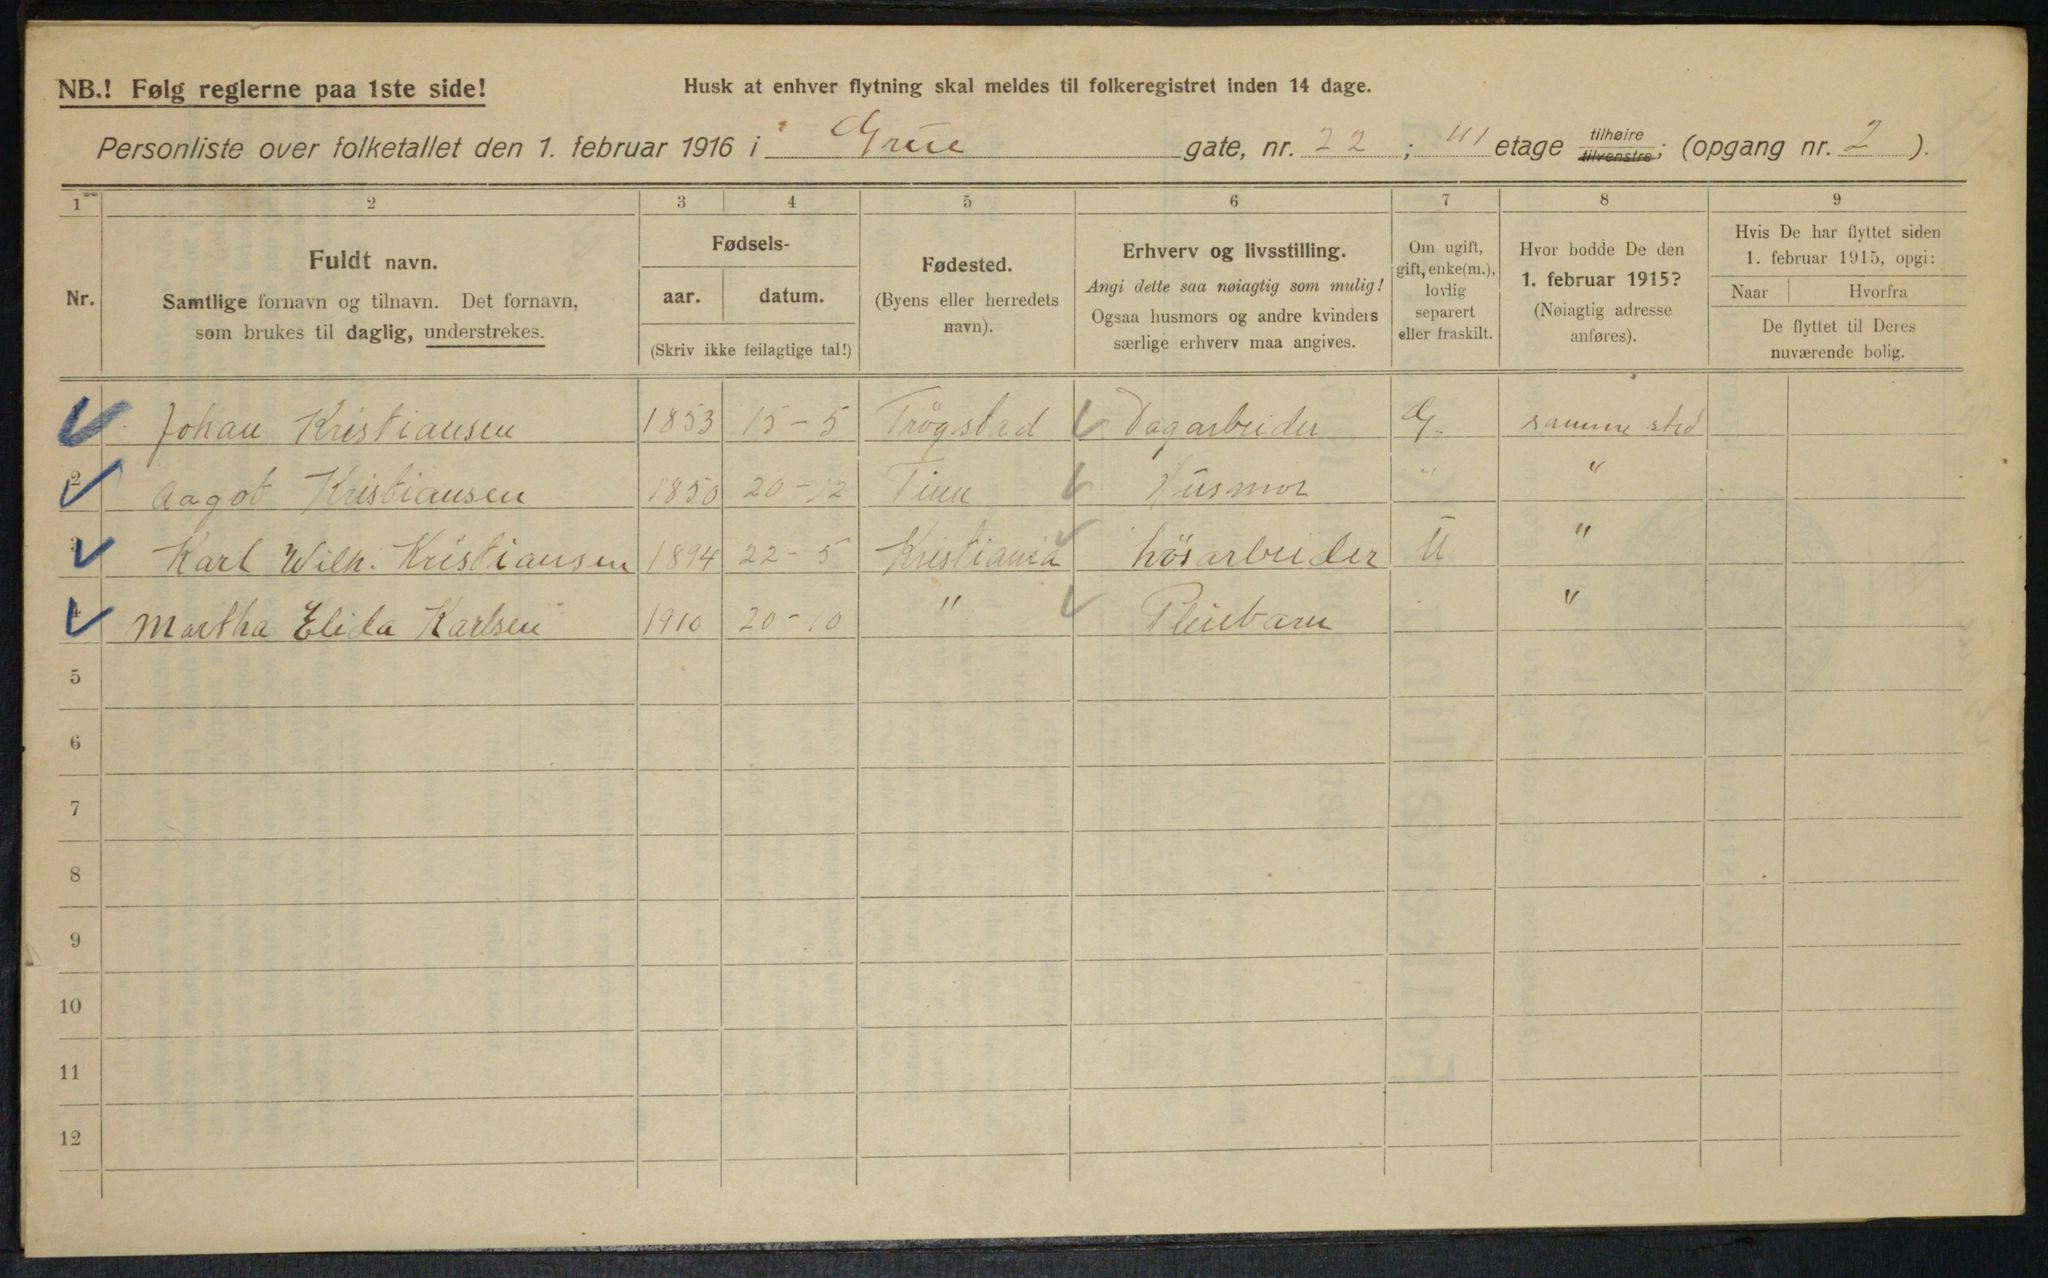 NB.! Følg reglerne paa 1ste side!
Husk at enhver flytning skal meldes til folkeregistret inden 14 dage.
Personliste over folketallet den 1. februar 1916 i Grüe gate, nr. 22; III etage tilhøire tilvenstre; (opgang nr. 2).
1 2 3 4 5 6 7 8 9
Nr.
Fuldt navn.
Samtlige fornavn og tilnavn. Det fornavn,
som brukes til daglig, understrekes.
Fødsels-
aar. datum.
(Skriv ikke feilagtige tal!)
Fødested.
(Byens eller herredets
navn).
Erhverv og livsstilling.
Angi dette saa nøiagtig som mulig!
Ogsaa husmors og andre kvinders
særlige erhverv maa angives.
Om ugift,
gift, enke(m.),
lovlig
separert
eller fraskilt.
Hvor bodde De den
1. februar 1915?
(Nøiagtig adresse
anføres).
Hvis De har flyttet siden
1. februar 1915, opgi:
Naar Hvorfra
De flyttet til Deres
nuværende bolig.
Johan Kristiansen 1853 15-5 Trögstad Dagarbeider G. samme sted
2 Aagot Kristiansen 1850 20-12 Tinn Husmor " "
3 Karl Wilh. Kristiansen 1894 22-5 Kristiania hösarbeider U "
4 Martha Elida Karlsen 1910 20-10 " Pleiebarn "
5
6
7
8
9
10
11
12